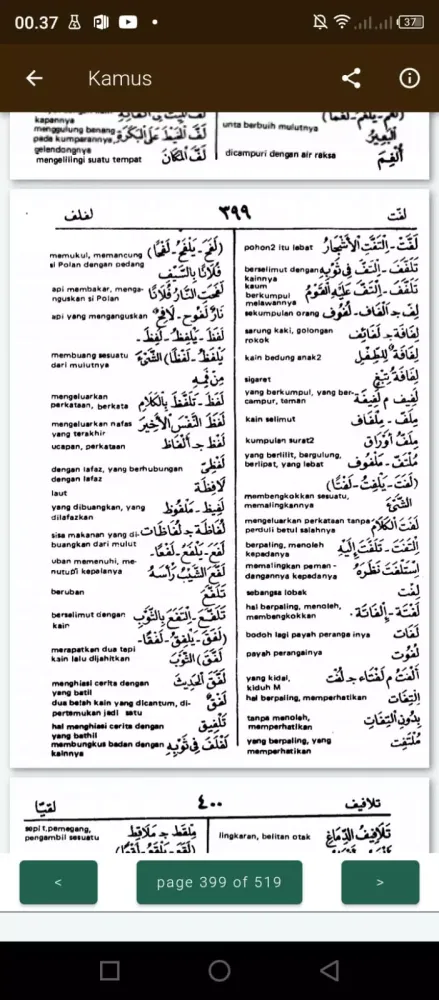 00.37
37
Kamus
kapannya
menggulung benang
pada kumparannya,
gelendongnya
mengelilingi suatu tempat
لَفَّ الْمَكَانَ
unta berbuih mulutnya
الْبَعِيْرُ
dicampuri dengan air raksa
أُلْغِمَ
لفت
٣٩٩
لفلف
pohon2 itu lebat
لَفَّتْ - اِلْتَفَّتِ الْأَشْجَارُ
berselimut dengan
kainnya
تَلَفَّفَ - اِلْتَفَّ فِي ثَوْبِهِ
kaum
berkumpul
melawannya
تَلَفَّفَ - اِلْتَفَّ عَلَيْهِ الْقَوْمُ
sekumpulan orang
لَفٌّ جـ أَلْفَافٌ - لُفُوْفٌ
sarung kaki, golongan
rokok
لِفَافَةٌ جـ لَفَائِفُ
kain bedung anak2
لِفَافَةٌ لِلطِّفْلِ
sigaret
لِفَافَةُ تَبْغٍ
yang berkumpul, yang ber-
campur, teman
لَفِيْفٌ م لَفِيْفَةٌ
kain selimut
مِلَفٌّ - مِلْفَافٌ
kumpulan surat2
مِلَفُّ أَوْرَاقٍ
yang berlilit, bergulung,
berlipat, yang lebat
مُلْتَفٌّ - مَلْفُوْفٌ
(لَفَتَ - يَلْفِتُ - لَفْتًا)
membengkokkan sesuatu,
memalingkannya
الشَّيْءَ
mengeluarkan perkataan tanpa
perduli betul salahnya
لَفَتَ الْكَلَامَ
berpaling, menoleh
kepadanya
اِلْتَفَتَ - تَلَفَّتَ إِلَيْهِ
memalingkan peman -
dangannya kepadanya
اِسْتَلْفَتَ نَظَرَهُ
sebangsa lobak
لِفْتٌ
hal berpaling, menoleh,
membengkokkan
لَفْتَةٌ - اِلْفَاتَةٌ -
bodoh lagi payah peranga inya
لَفَاتٌ
payah perangainya
لَفُوْتٌ
yang kidal,
kiduh M
أَلْفَتُ م لَفْتَاءُ جـ لُفْتٌ
hal berpaling, memperhatikan
اِلْتِفَاتٌ
tanpa menoleh,
memperhatikan
بِدُوْنِ الْتِفَاتٍ
yang berpaling, yang
memperhatikan
مُلْتَفِتٌ
memukul, memancung
si Polan dengan pedang
(لَفَحَ - يَلْفَحُ - لَفْحًا)
فُلَانًا بِالسَّيْفِ
api membakar, menga-
nguskan si Polan
لَفَحَتِ النَّارُ فُلَانًا
api yang menganguskan
نَارٌ لَفُوْحٌ - لَافِحٌ
لَفَظَ - يَلْفِظُ - لَفِظَ -
membuang sesuatu
dari mulutnya
يَلْفَظُ - لَفْظًا) الشَّيْءَ
مِنْ فَمِهِ
mengeluarkan
perkataan, berkata
لَفَظَ - تَلَفَّظَ بِالْكَلَامِ
mengeluarkan nafas
yang terakhir
لَفَظَ النَّفَسَ الْأَخِيْرَ
ucapan, perkataan
لَفْظٌ جـ أَلْفَاظٌ
dengan lafaz, yang berhubungan
dengan lafaz
لَفْظِيٌّ
laut
لَافِظَةٌ
yang dibuangkan, yang
dilafazkan
لَفِيْظٌ - مَلْفُوْظٌ
sisa makanan yang di-
buangkan dari mulut
لُفَاظَةٌ جـ لُفَاظَاتٌ
لَفَعَ - يَلْفَعُ - لَفْعًا -
uban memenuhi, me-
nutupi kepalanya
لَفَعَ الشَّيْبُ رَأْسَهُ
beruban
تَلَفَّعَ
berselimut dengan
kain
تَلَفَّعَ - اِلْتَفَعَ بِالثَّوْبِ
لَفَقَ - يَلْفِقُ - لَفْقًا -
merapatkan dua tepi
kain lalu dijahitkan
لَفَّقَ) الثَّوْبَ
menghiasi cerita dengan
yang batil
لَفَّقَ الْحَدِيْثَ
dua belah kain yang dicantum, di-
pertemukan jadi satu
لِفْقٌ
hal menghiasi cerita dengan
yang bathil
تَلْفِيْقٌ
membungkus badan dengan
kainnya
لَفْلَفَ فِي ثَوْبِهِ
تلافيف
٤٠٠
لقيّا
lingkaran, belitan otak
تَلَافِيْفُ الدِّمَاغِ
sepi t,pemegang,
pengambil sesuatu
مِلْقَطٌ جـ مَلَاقِطُ
<
page 399 of 519
>